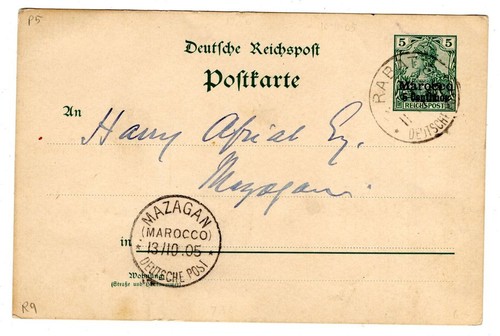 P5
Deutsche Reichspost
Postkarte
5 5
Marocco
5 Centimos
REICHSPOST
RABAT
11
DEUTSCHE
An
Harry Afriat Esq.
Mazagan
MAZAGAN
(MAROCCO)
13/10.05
DEUTSCHE POST
in
Wohnung
(Straße und Hausnummer)
R9